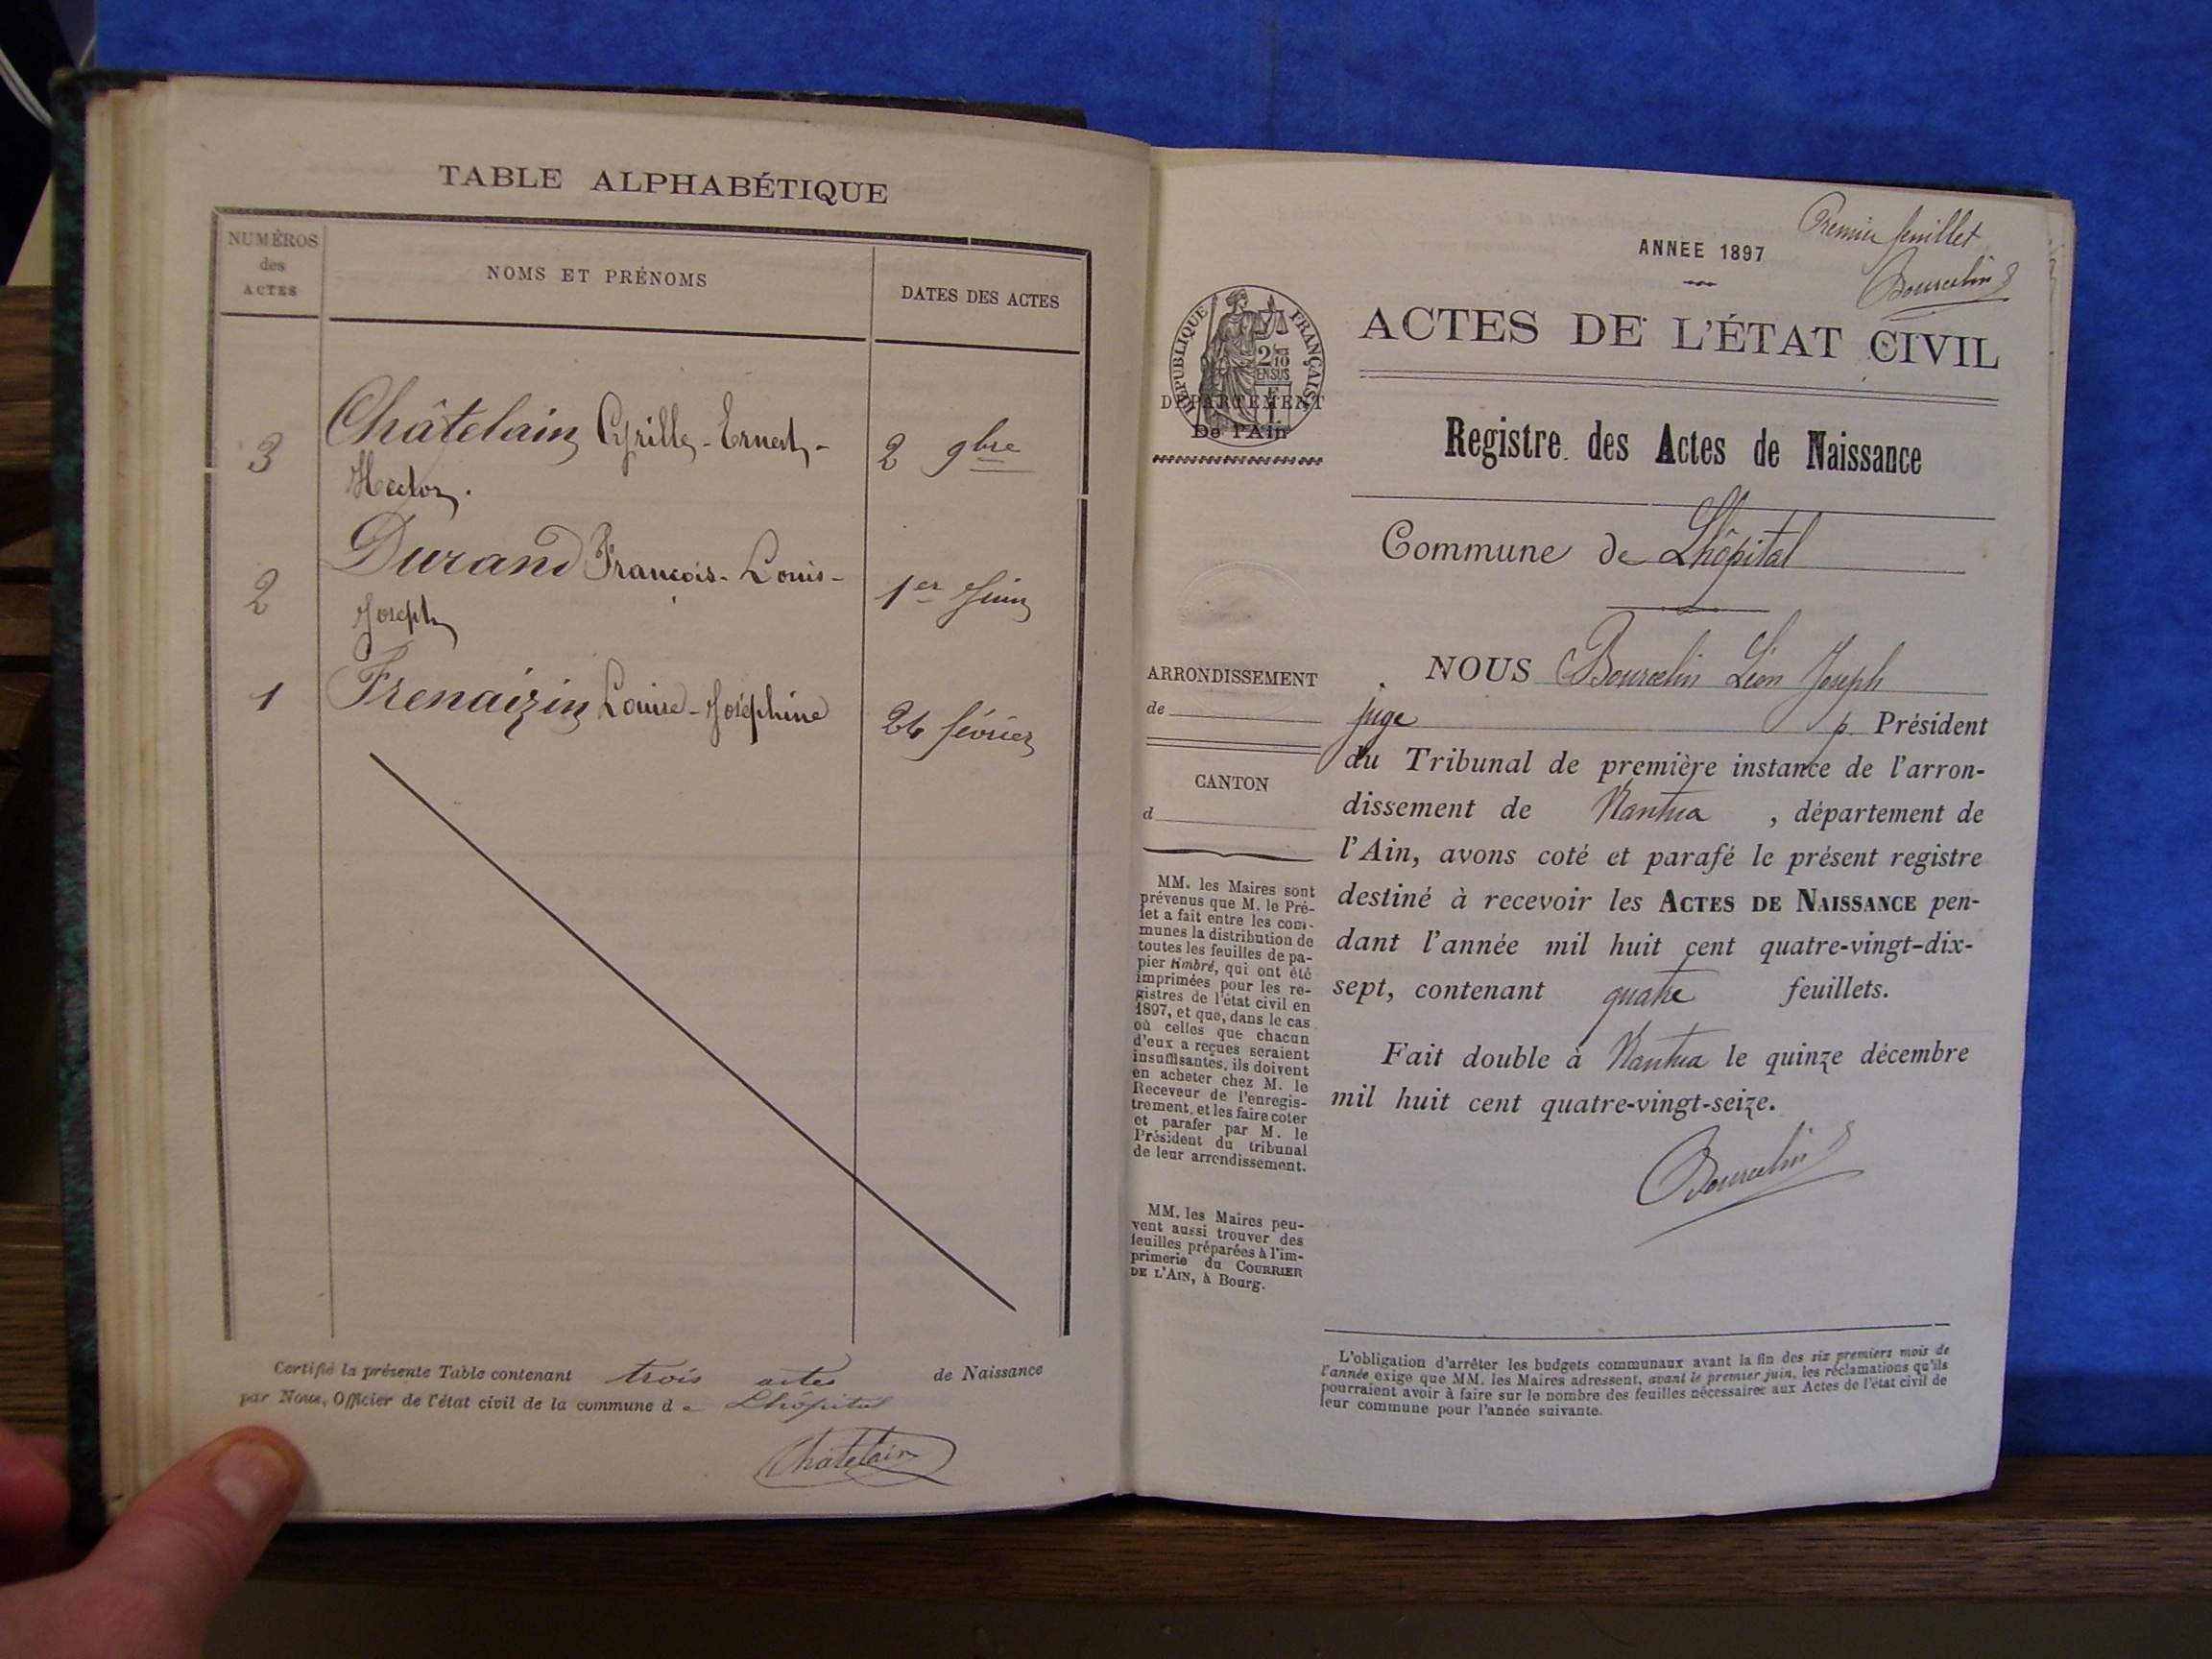 TABLE ALPHABÉTIQUE
NUMÉROS
des
ACTES
NOMS ET PRÉNOMS
DATES DES ACTES
3 Châtelain Cyrille-Ernest- 2 9bre
Hector.
2 Durand François-Louis- 1er Juin
Joseph
1 Frenaizin Louise-Joséphine 24 février
Certifié la présente Table contenant trois actes de Naissance
par Nous, Officier de l'état civil de la commune de Lhôpital
Chatelain
Premier feuillet
Bourcelin
ANNEE 1897
RÉPUBLIQUE FRANÇAISE
2/10
EN SUS
DÉPARTEMENT
De l'Ain
ACTES DE L'ÉTAT CIVIL
Registre des Actes de Naissance
Commune de Lhôpital
ARRONDISSEMENT
de
CANTON
d
MM. les Maires sont
prévenus que M. le Pré-
fet a fait entre les com-
munes la distribution de
toutes les feuilles de pa-
pier timbré, qui ont été
imprimées pour les re-
gistres de l'état civil en
1897, et que, dans le cas
où celles que chacun
d'eux a reçues seraient
insuffisantes, ils doivent
en acheter chez M. le
Receveur de l'enregis-
trement, et les faire coter
et parafer par M. le
Président du tribunal
de leur arrondissement.
MM. les Maires peu-
vent aussi trouver des
feuilles préparées à l'im-
primerie du COURRIER
DE L'AIN, à Bourg.
NOUS Bourcelin Léon Joseph
juge p. Président
du Tribunal de première instance de l'arron-
dissement de Nantua , département de
l'Ain, avons coté et parafé le présent registre
destiné à recevoir les ACTES DE NAISSANCE pen-
dant l'année mil huit cent quatre-vingt-dix-
sept, contenant quatre feuillets.
Fait double à Nantua le quinze décembre
mil huit cent quatre-vingt-seize.
Bourcelin
L'obligation d'arrêter les budgets communaux avant la fin des six premiers mois de
l'année exige que MM. les Maires adressent, avant le premier juin, les réclamations qu'ils
pourraient avoir à faire sur le nombre des feuilles nécessaires aux Actes de l'état civil de
leur commune pour l'année suivante.